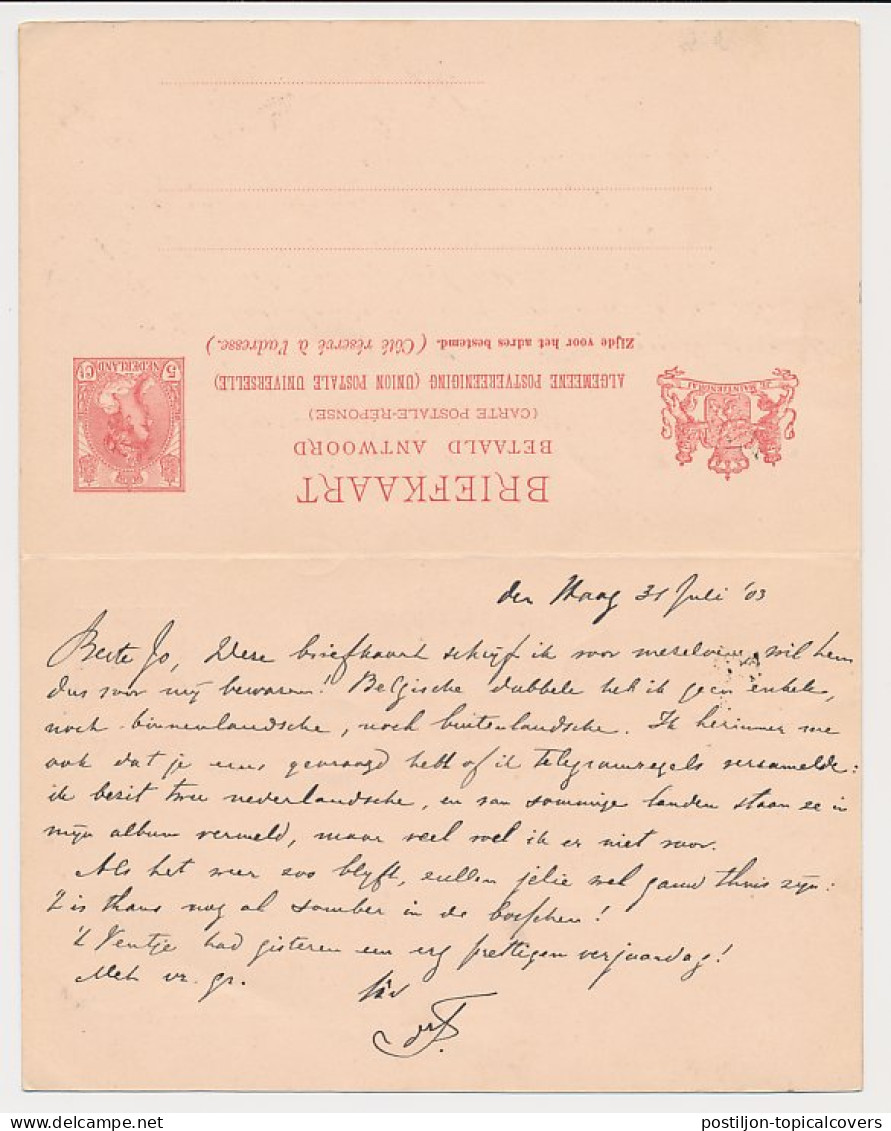 BRIEFKAART
BETAALD ANTWOORD
(CARTE POSTALE-RÉPONSE)
ALGEMEENE POSTVEREENIGING (UNION POSTALE UNIVERSELLE)
Zijde voor het adres bestemd. (Côté réservé à l'adresse.)
JE MAINTIENDRAI
5 Ct
NEDERLAND
den Haag 31 Juli '03
Beste Jo, Deze briefkaart schrijf ik voor mezelven, wil hem
dus voor mij bewaren! Belgische dubbele heb ik geen enkele,
noch binnenlandsche, noch buitenlandsche. Ik herinner me
ook dat je eens gevraagd hebt of ik telegramzegels verzamelde:
ik bezit twee nederlandsche, en van sommige landen staan ze in
mijn album vermeld, maar veel voel ik er niet voor.
Als het weer zoo blijft, zullen jelie wel gauw thuis zijn:
't is thans nog al somber in de bosschen!
't Ventje had gisteren een erg prettigen verjaardag!
Met vr. gr.
postiljon-topicalcovers